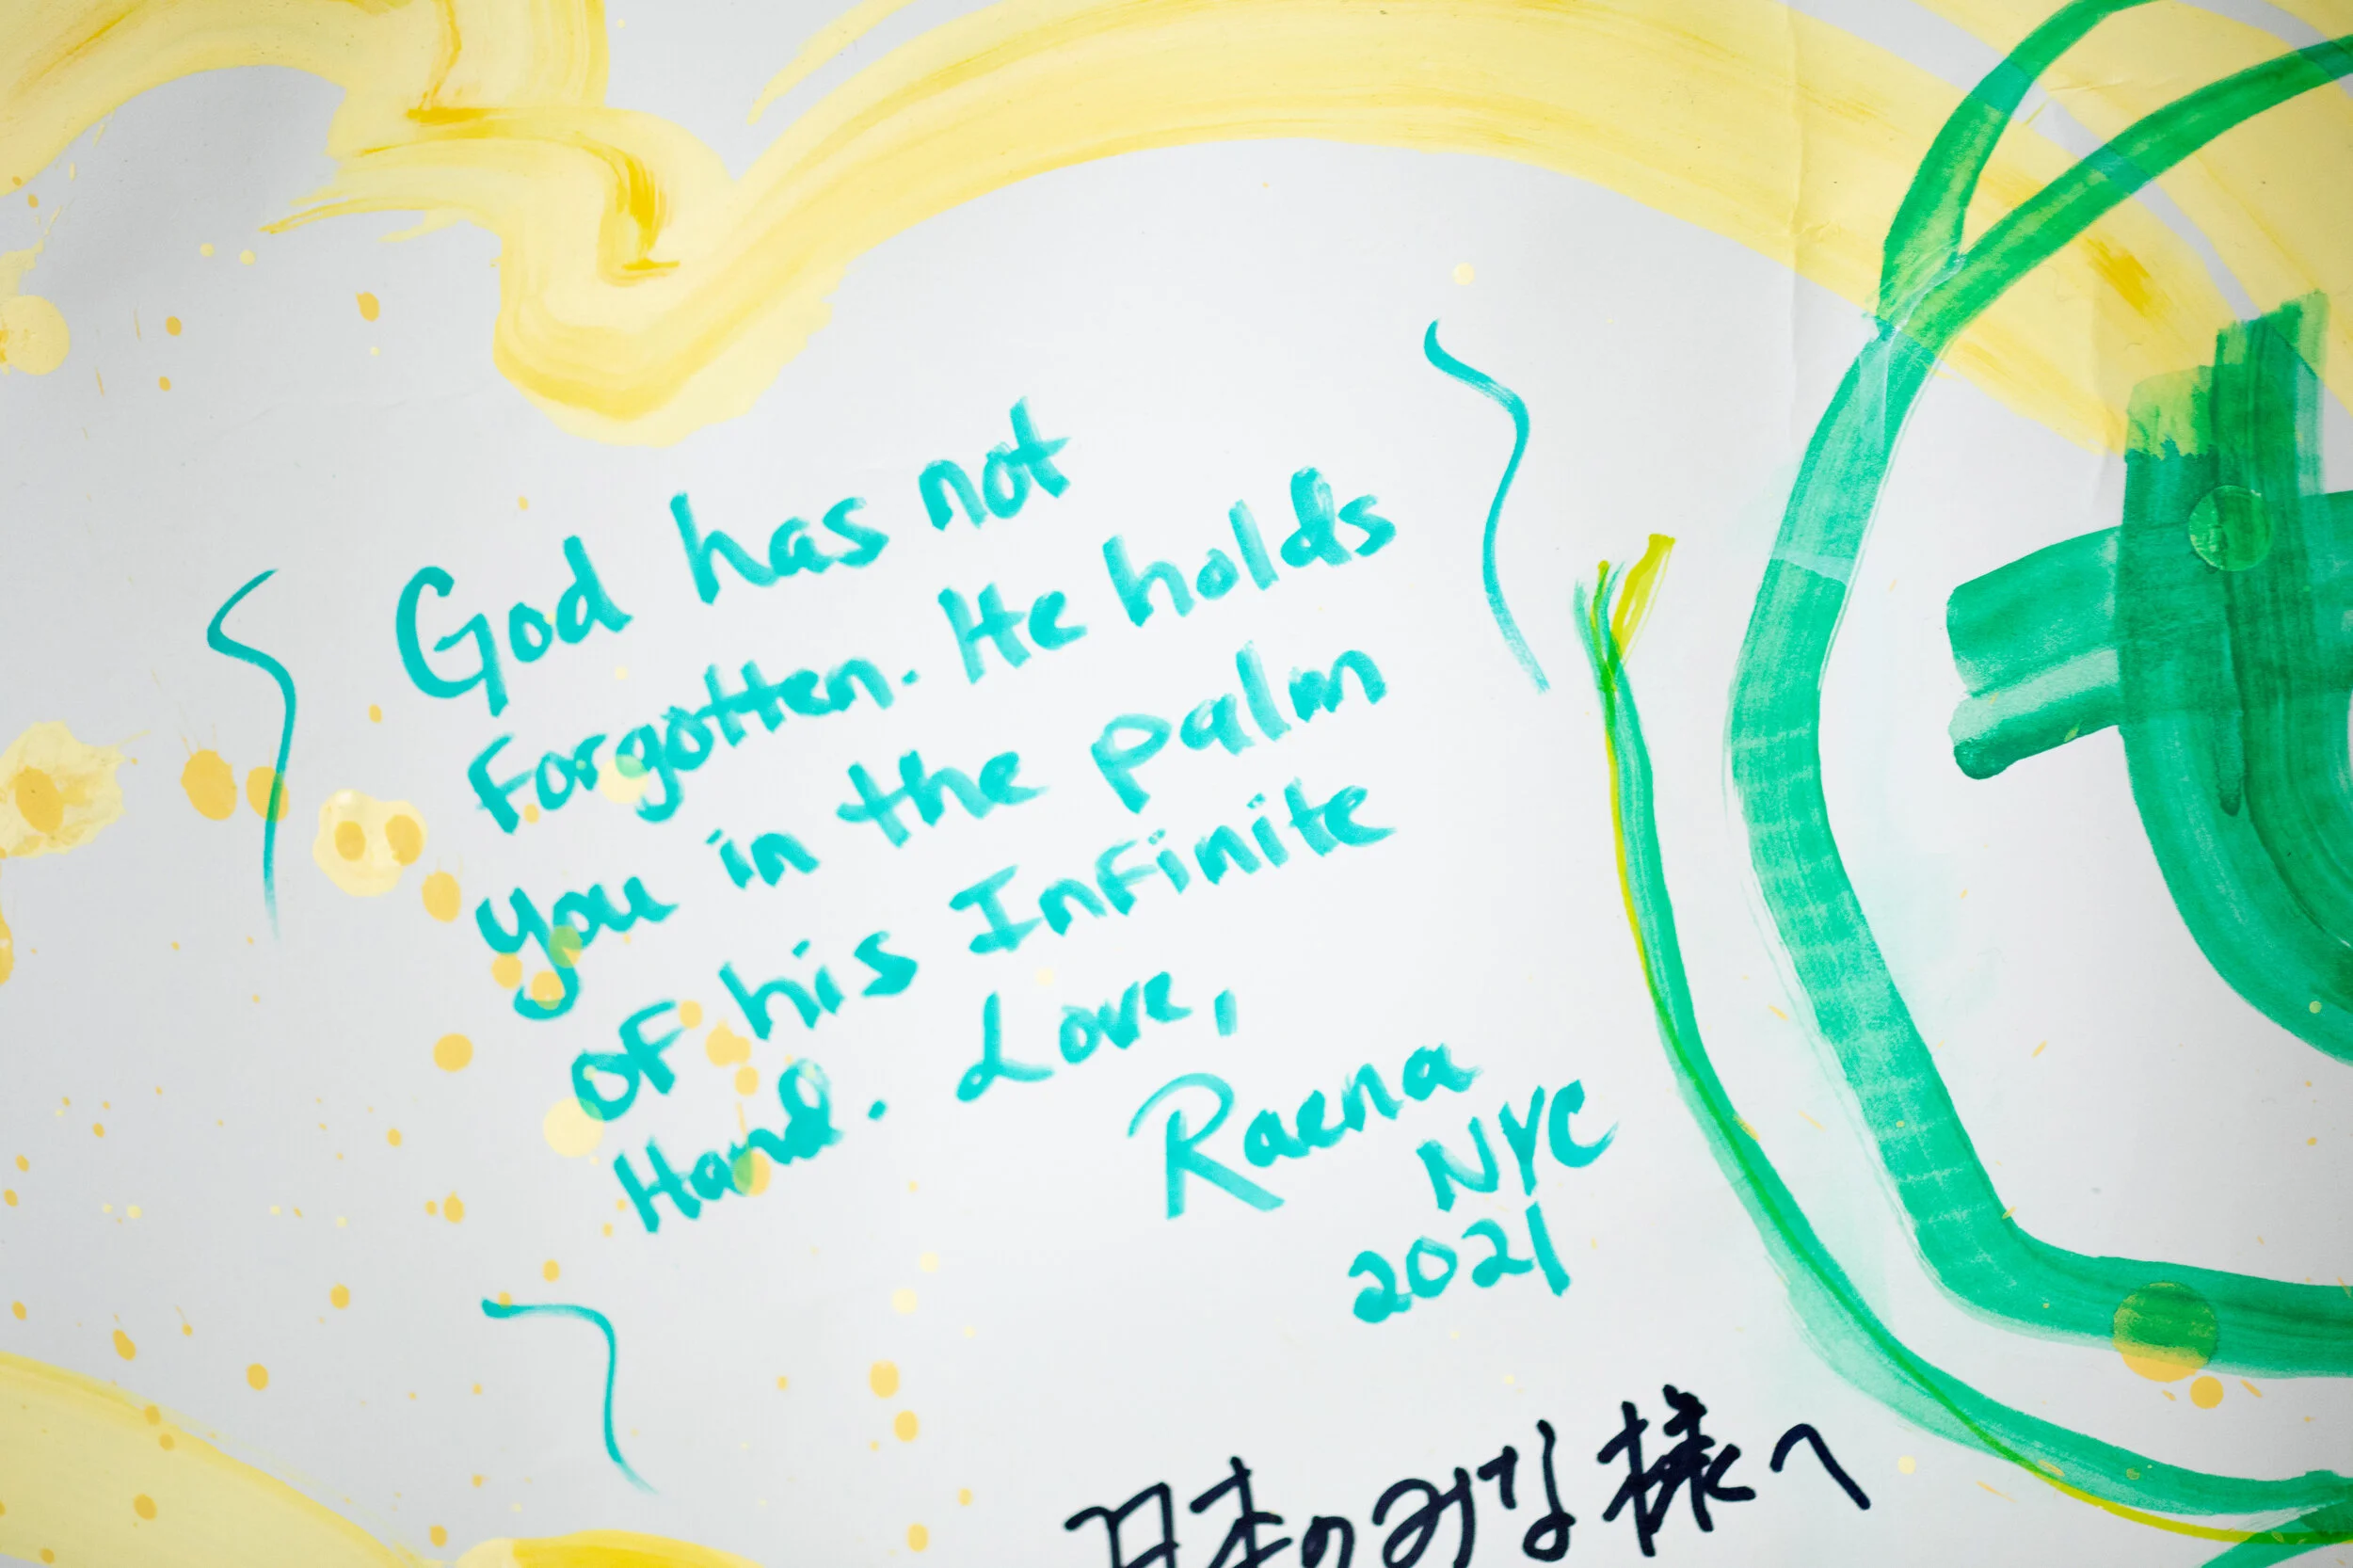 God has not
Forgotten. He holds
you in the palm
OF his InFinite
Hand. Love,
Raena
NYC
2021
日本のみなな様へ